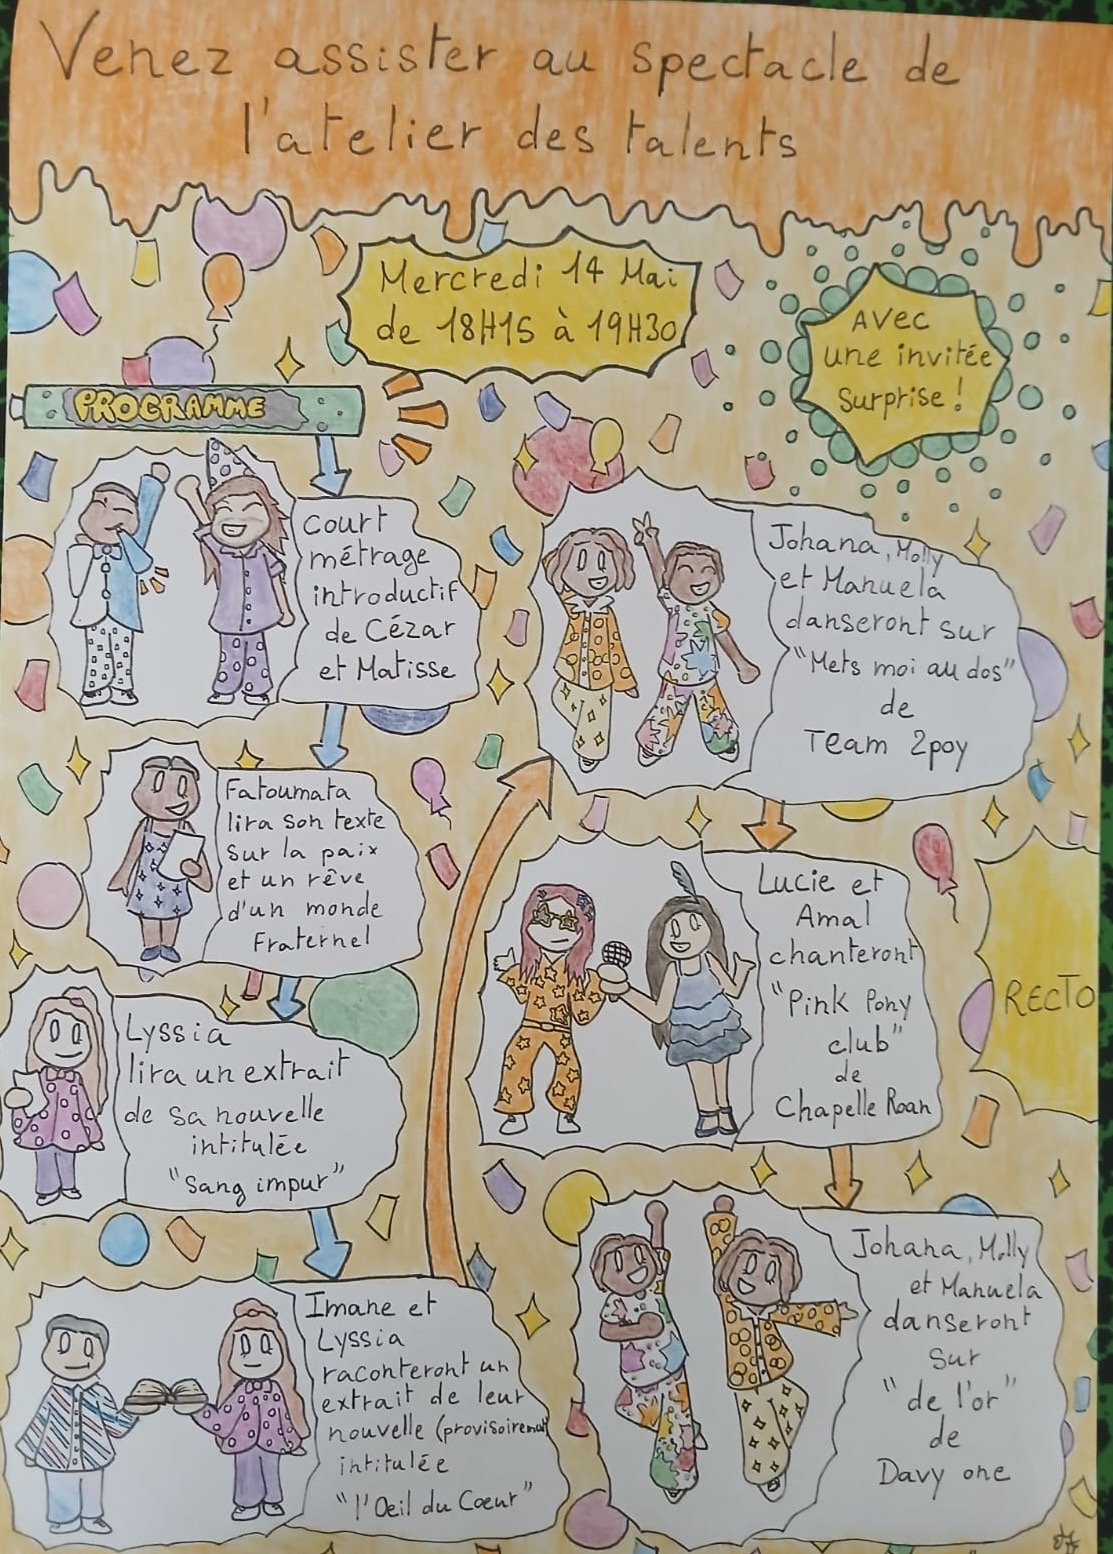 Venez assister au spectacle de
l'atelier des talents
Mercredi 14 Mai
de 18H15 à 19H30
AVEC
une invitée
surprise !
PROGRAMME
court
métrage
introductif
de Cézar
et Matisse
Fatoumata
lira son texte
sur la paix
et un rêve
d'un monde
fraternel
Lyssia
lira un extrait
de sa nouvelle
intitulée
"Sang impur"
Imane et
Lyssia
raconteront un
extrait de leur
nouvelle (provisoirement
intitulée
"l'Oeil du Cœur"
Johana, Molly
et Manuela
danseront sur
"Mets moi au dos"
de
Team 2poy
Lucie et
Amal
chanteront
"Pink Pony
club"
de
Chapelle Roan
RECTO
Johana, Molly
et Manuela
danseront
sur
"de l'or"
de
Davy one